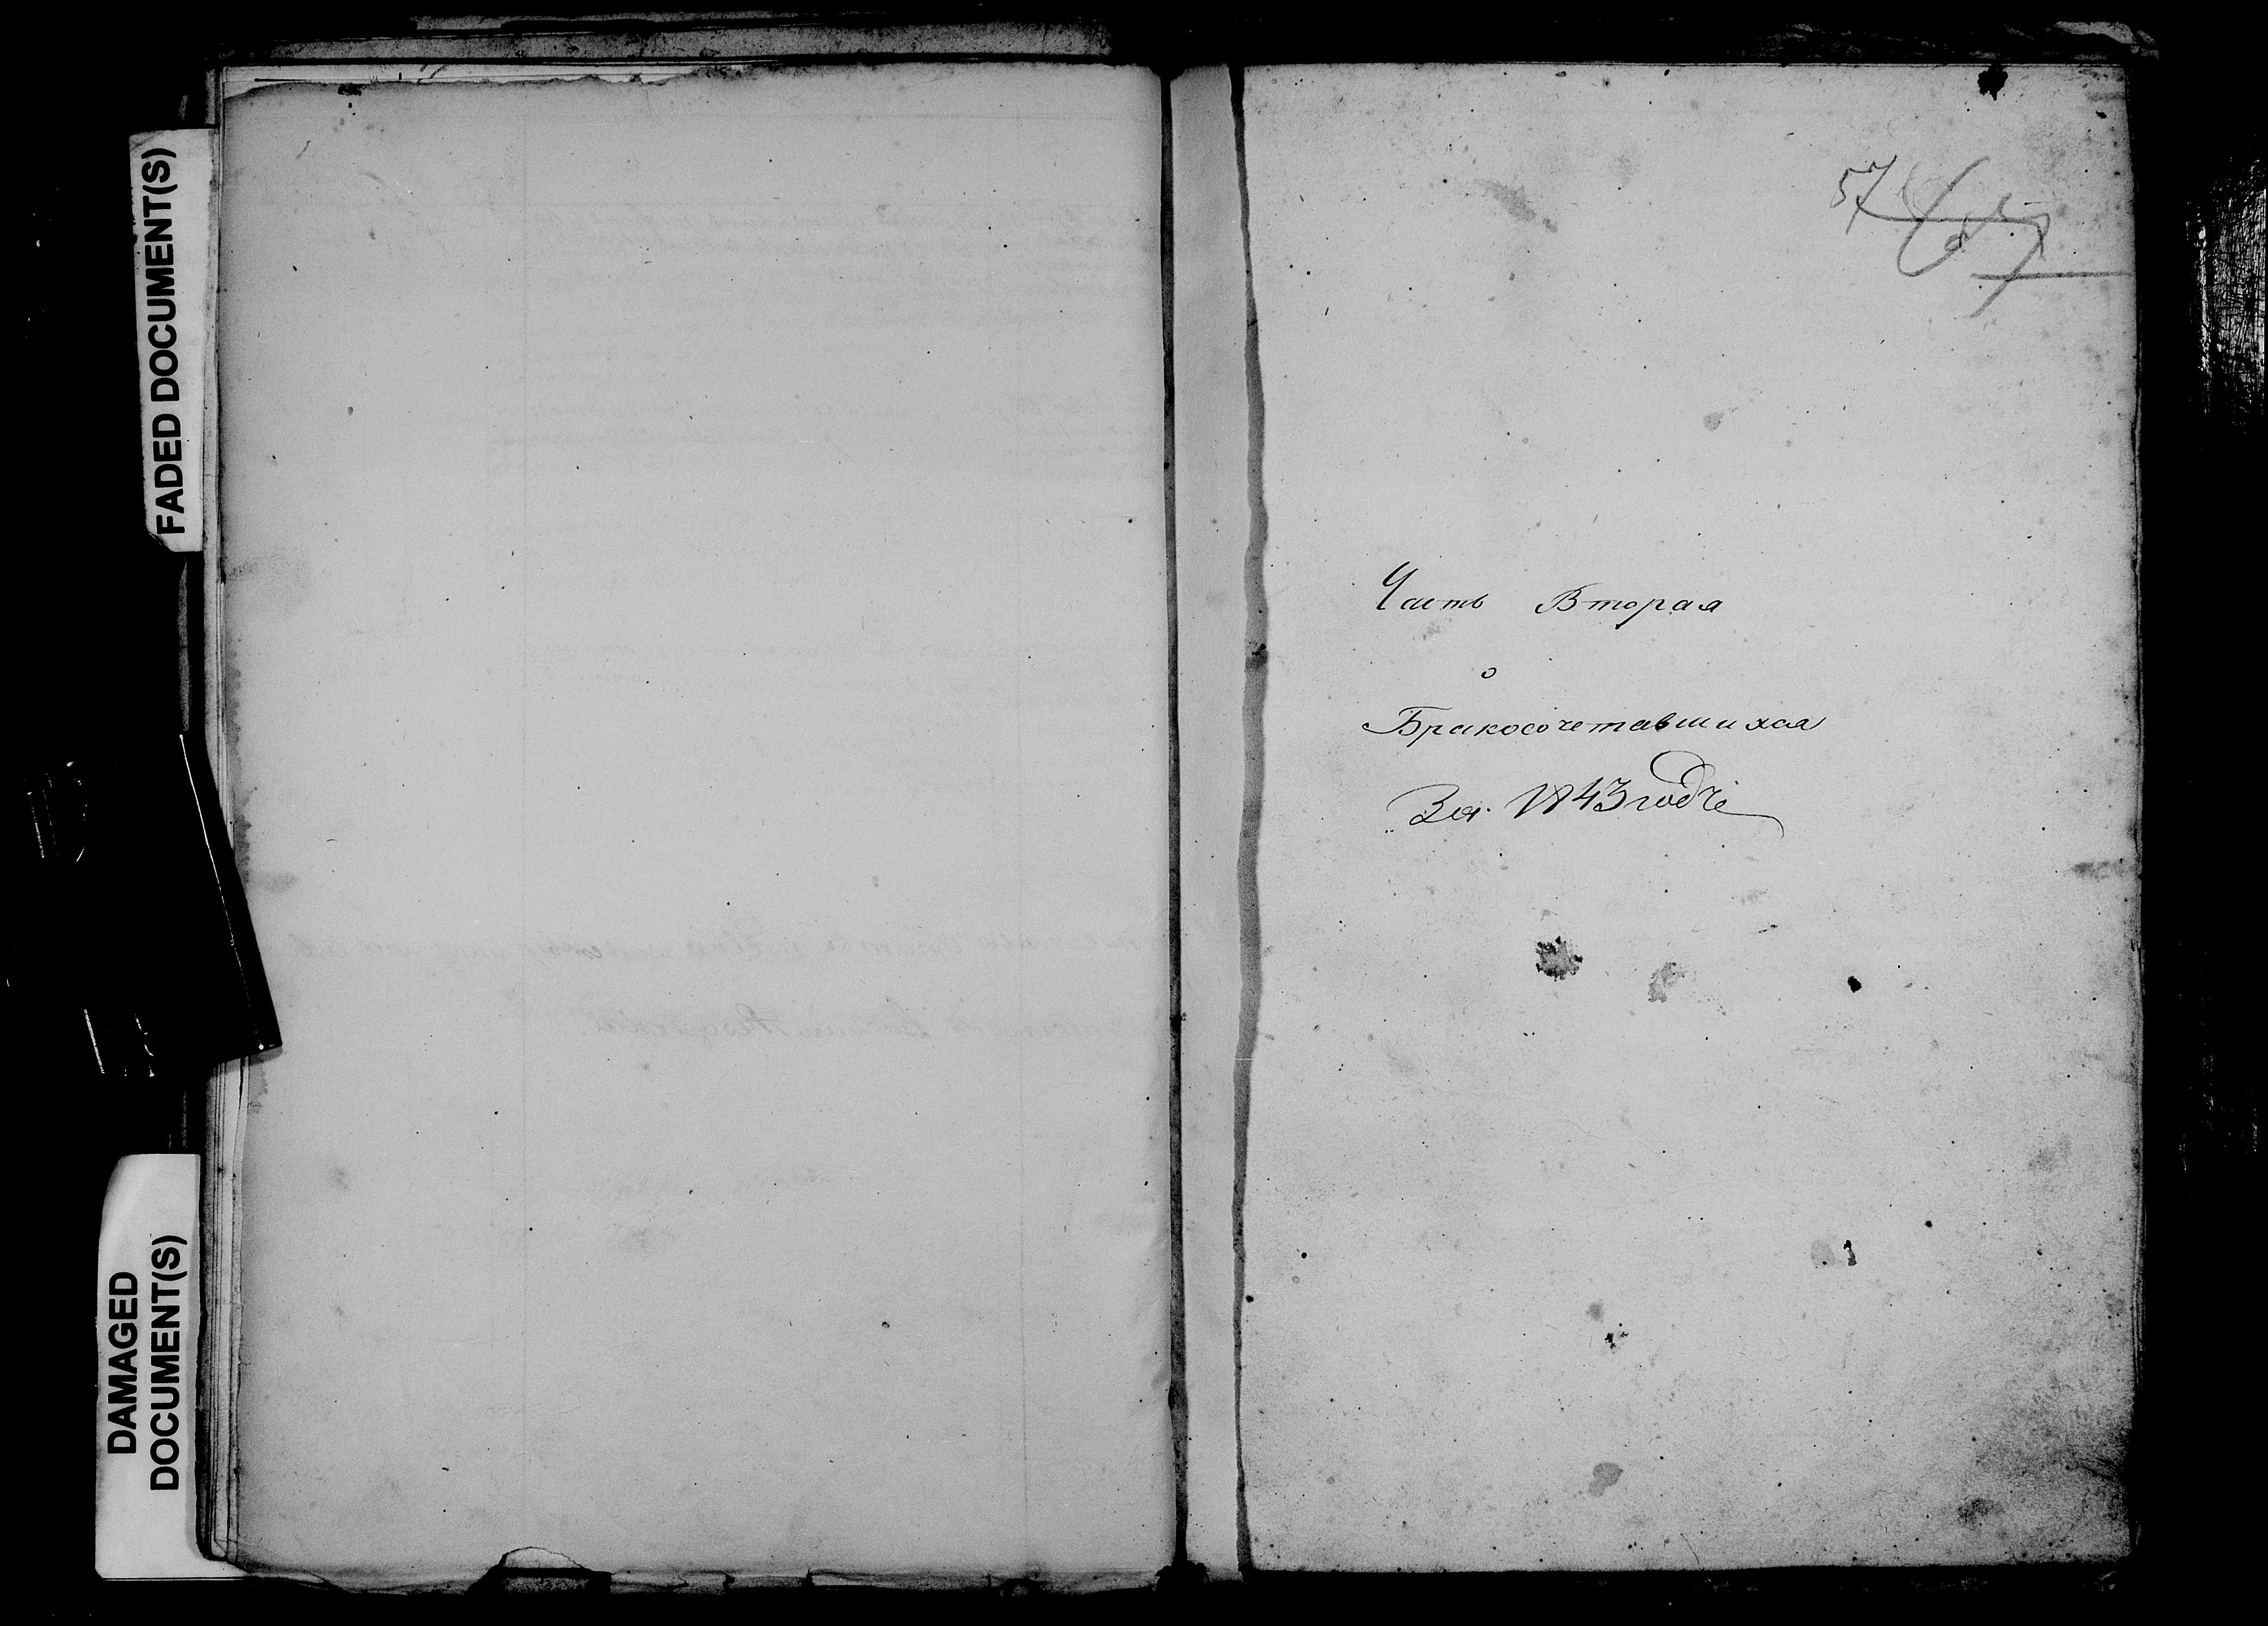 FADED DOCUMENT(S)
DAMAGED
DOCUMENT(S)
57
Часть Вторая
о
Бракосочетавшихся
За 1843 годъ